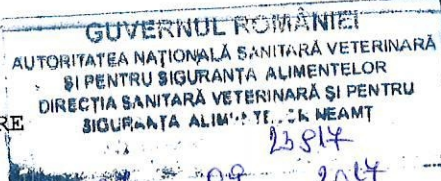 GUVERNUL ROMÂNIEI
AUTORITATEA NAȚIONALĂ SANITARĂ VETERINARĂ
ȘI PENTRU SIGURANȚA ALIMENTELOR
DIRECȚIA SANITARĂ VETERINARĂ ȘI PENTRU
RE
SIGURANȚA NEAMȚ